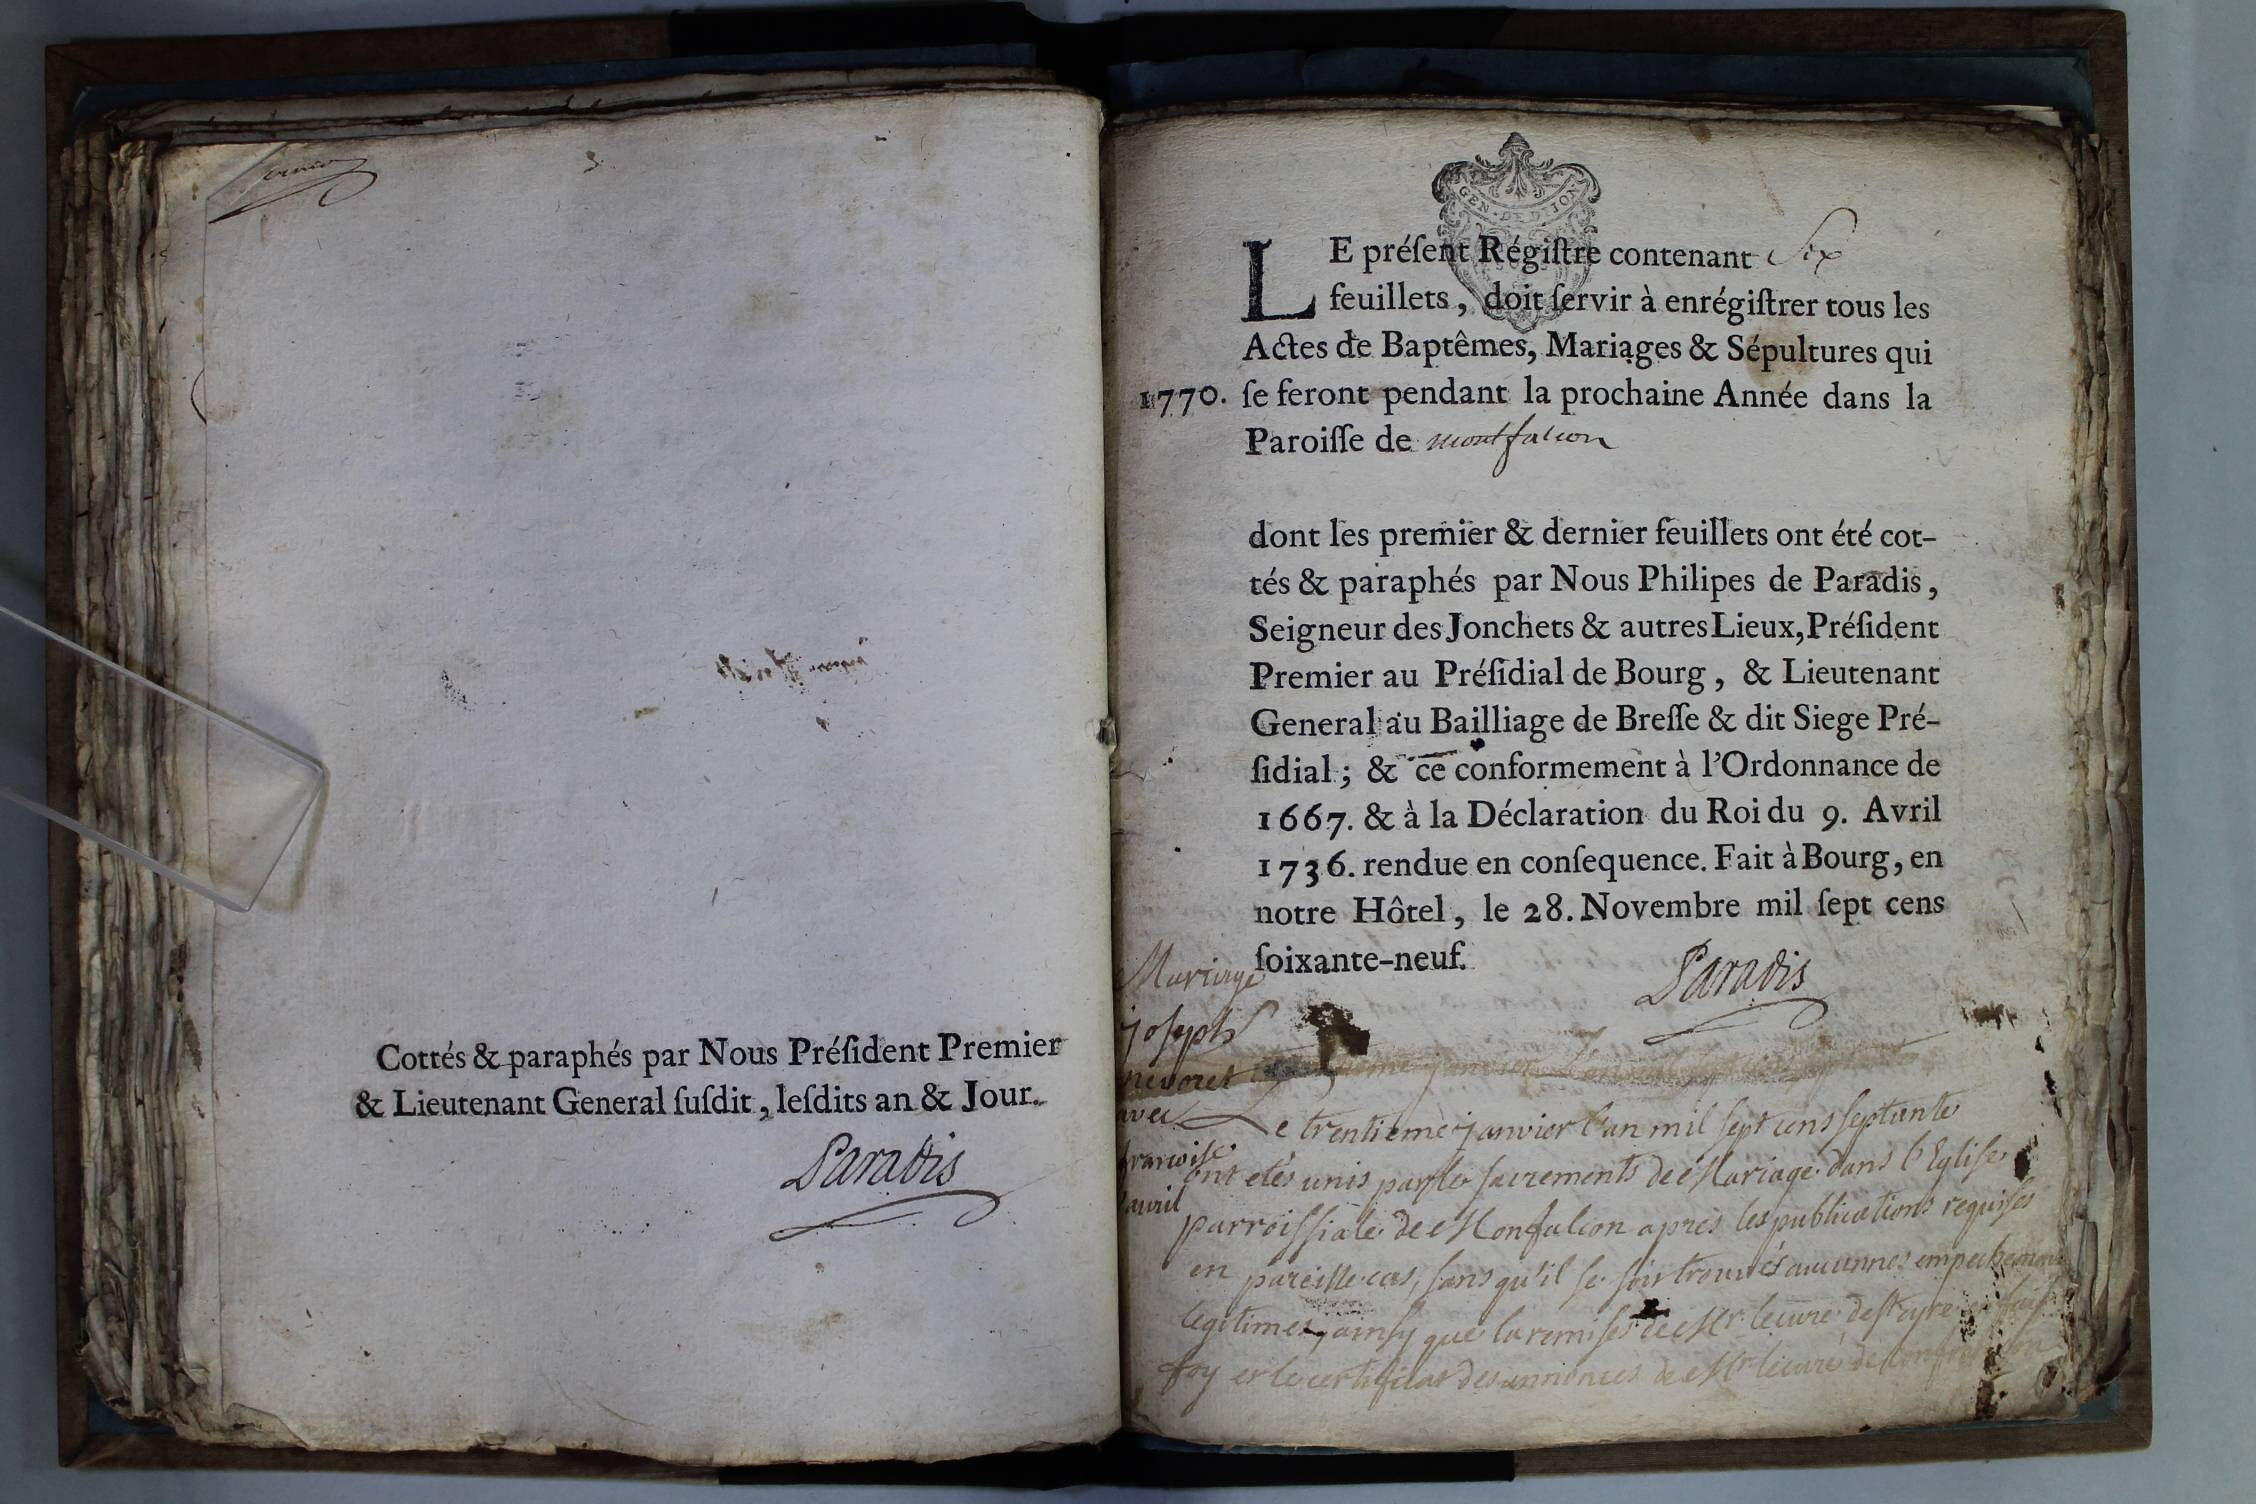 dernier
Cottés & paraphés par Nous Préſident Premier
& Lieutenant General ſuſdit, leſdits an & Jour.
Paradis
GEN · DE DIJON
LE préſent Régiſtre contenant Six
feuillets, doit ſervir à enrégiſtrer tous les
Actes de Baptêmes, Mariages & Sépultures qui
1770. ſe feront pendant la prochaine Année dans la
Paroiſſe de montfalcon
dont les premier & dernier feuillets ont été cot-
tés & paraphés par Nous Philipes de Paradis,
Seigneur des Jonchets & autres Lieux, Préſident
Premier au Préſidial de Bourg, & Lieutenant
General au Bailliage de Breſſe & dit Siege Pré-
ſidial; & ce conformement à l'Ordonnance de
1667. & à la Déclaration du Roi du 9. Avril
1736. rendue en conſequence. Fait à Bourg, en
notre Hôtel, le 28. Novembre mil ſept cens
ſoixante-neuf.
Paradis
Mariage
joseph
nevoret
avec
francoise
avril
Le trentieme janvier l'an mil sept cens septante
ont etés unis par le sacrements de Mariage dans l'Eglise
parroissiale de Monfalcon apres les publications requises
en pareille cas, sans qu'il se soit trouvés aucunnes empechemens
legitimes, ainsy que la remise de Mr le curé fait
foy et le certificat des annonces de Mr le curé de